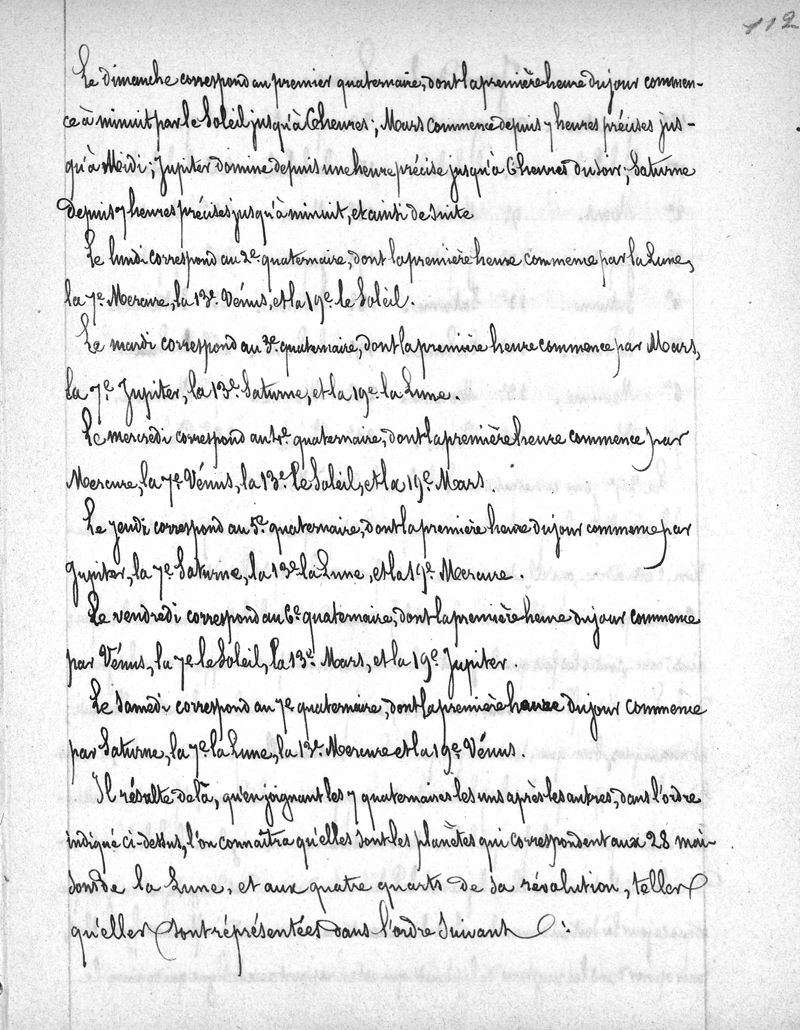 112
Le dimanche correspond au premier quaternaire, dont la première heure du jour commen-
ce à minuit par le Soleil jusqu'à 6 heures; Mars commence depuis 7 heures précises jus-
qu'à Midi; Jupiter domine depuis une heure précise jusqu'à 6 heures du soir; Saturne
depuis 7 heures précises jusqu'à minuit, et ainsi de suite
Le lundi correspond au 2e quaternaire, dont la première heure commence par la Lune,
la 7e Mercure, la 13e Vénus, et la 19e le Soleil.
Le mardi correspond au 3e quaternaire, dont la première heure commence par Mars,
la 7e Jupiter, la 13e Saturne, et la 19e la Lune.
Le mercredi correspond au 4e quaternaire, dont la première heure commence par
Mercure, la 7e Vénus, la 13e le Soleil, et la 19e Mars.
Le jeudi correspond au 5e quaternaire, dont la première heure du jour commence par
Jupiter, la 7e Saturne, la 13e la Lune, et la 19e Mercure.
Le vendredi correspond au 6e quaternaire, dont la première heure du jour commence
par Vénus, la 7e le Soleil, la 13e Mars, et la 19e Jupiter.
Le Samedi correspond au 7e quaternaire, dont la première heure du jour commence
par Saturne, la 7e la Lune, la 13e Mercure et la 19e Vénus.
Il résulte de là, qu'en joignant les 7 quaternaires les uns après les autres, dans l'ordre
indiqué ci-dessus, l'on connaîtra qu'elles sont les planètes qui correspondent aux 28 mai-
sons de la Lune, et aux quatre quarts de sa révolution, telles
qu'elles sont réprésentées dans l'ordre suivant :